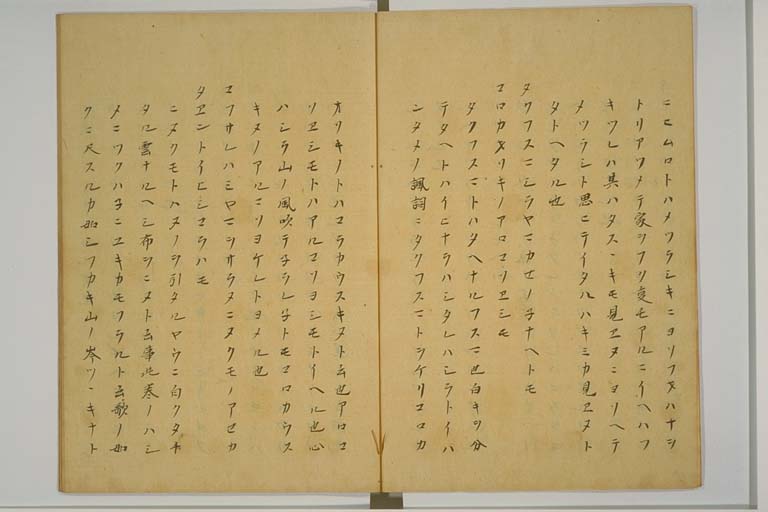 ニヒムロトハメツラシキニヨソフハナシ
トリアツメテ家ツフリ定モアルニイヘハフ
キツレハ具ハタスヽキモ見ヱヌニヨソヘテ
メツラシト思ニライタルハキミカ見ヱヌト
タトヘタル也
タクフスマシラヤマカセノ子ナヘトモ
コロカオソキノアロコソヱシモ
タクフスマトハタヘナルフスマ也白キヲ分
テタヘトハイヒナラハシタレハシラトイハ
ンタメノ諷詞ニタクフスマトツケリコロカ
オソキノトハコラカウスキヌト云也アロコ
ソヱシモトハアルコソヨシモトイヘル也心
ハシラ山ノ風吹テ子ラレ子トモコロカウス
キヌノアルコソヨケレトヨメル也
コフサレハミヤマヲサラヌニヌクモノアセカ
タヱントイヒシコラハモ
ニヌクモトハヌノヲ引タルヤウニ白クタチ
タル雲ナルヘシ布ヲニヌト云事此巻ノハシ
メニツクハ子ニユキカモフラルト云歌ノ如
クニ尺スルカ如シフカキ山ノ岑ツヽキナト